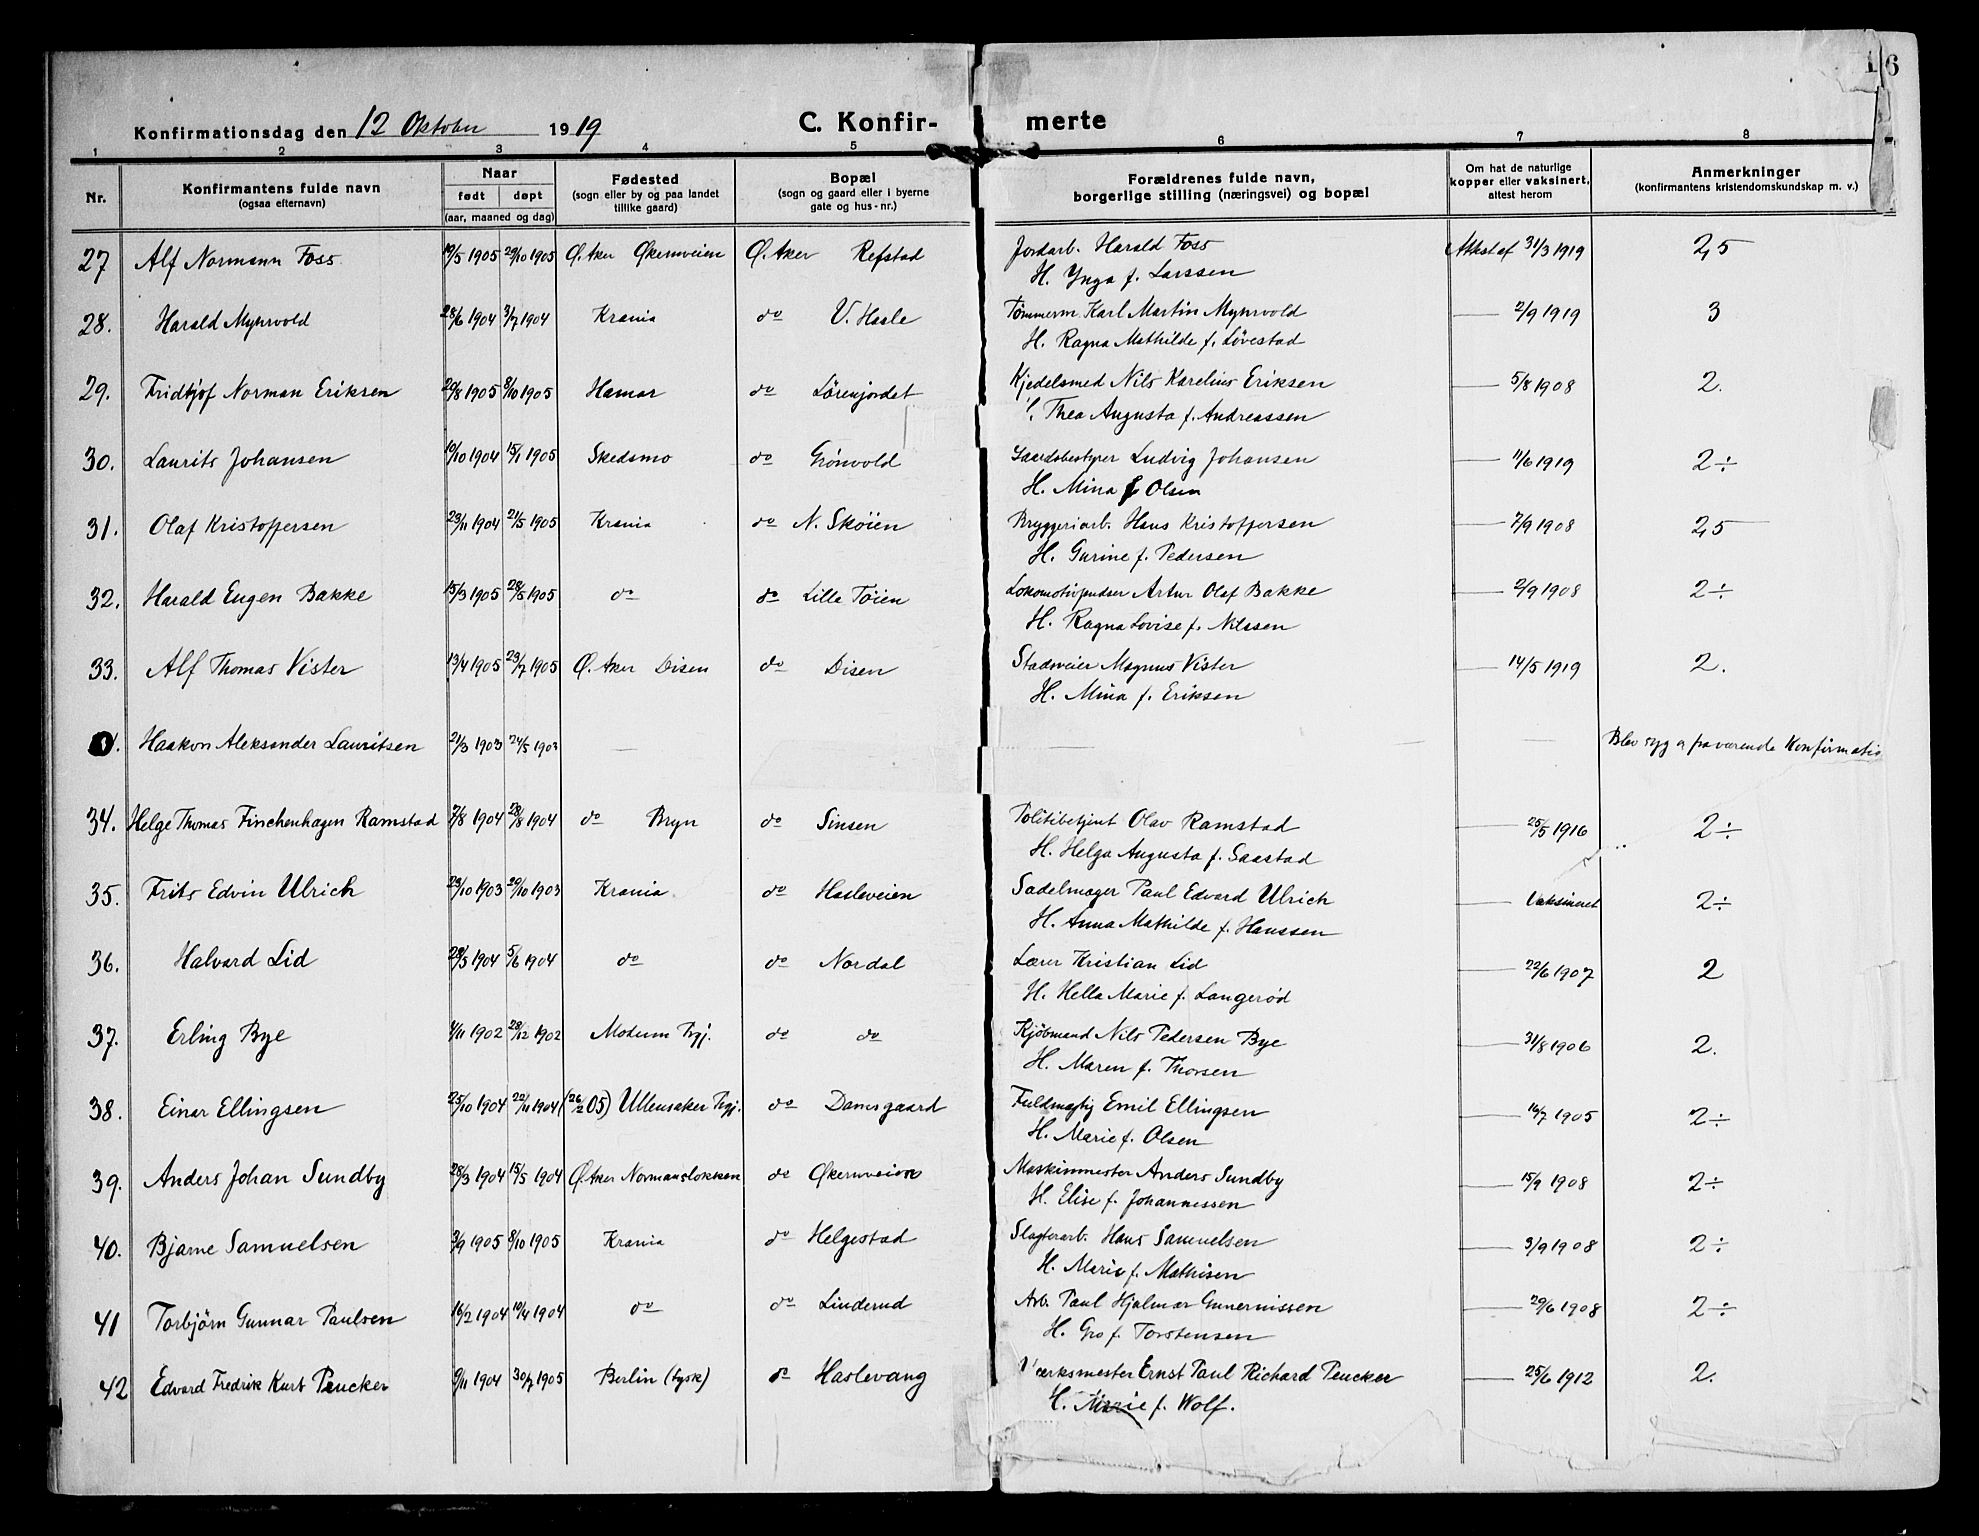 16
Konfirmationsdag den 12 Oktober 1919 C. Konfirmerte
1 2 3 4 5 6 7 8
Nr. Konfirmantens fulde navn (ogsaa efternavn) Naar født døpt (aar, maaned og dag) Fødested (sogn eller by og paa landet tillike gaard) Bopæl (sogn og gaard eller i byerne gate og hus-nr.) Forældrenes fulde navn, borgerlige stilling (næringsvei) og bopæl Om hat de naturlige kopper eller vaksinert, attest herom Anmerkninger (konfirmantens kristendomskundskap m. v.)
27 Alf Normann Foss 19/5 1905 29/10 1905 Ø. Aker Økernveien Ø. Aker Refstad Jordarb. Harald Foss Attest af 31/3 1919 2,5
H. Ynga f. Larssen
28. Harald Myhrvold 28/6 1904 3/7 1904 Krania do V. Hasle Tømmerm. Karl Martin Myhrvold — 2/9 1919 3
H. Ragna Mathilde f. Løvestad
29. Fridtjof Norman Eriksen 20/8 1905 8/10 1905 Hamar do Lørenjordet Kjedelsmed Nils Karelius Eriksen — 5/8 1908 2.
H. Thea Augusta f. Andreassen
30. Laurits Johansen 10/10 1904 15/1 1905 Skedsmo do Grönvold Gaardsbestyrer Ludvig Johansen — 11/6 1919 2÷
H. Mina f Olsen
31. Olaf Kristoffersen 23/11 1904 21/5 1905 Krania do N. Skøien Bryggeriarb. Hans Kristoffersen — 7/9 1908 2,5
H. Gurine f. Pedersen
32. Harald Eugen Bakke 15/3 1905 28/5 1905 do do Lille Tøien Lokomotivpudser Artur Olaf Bakke — 2/9 1908 2÷
H. Ragna Lovise f. Nilssen
33. Alf Thomas Vister 13/4 1905 23/7 1905 Ø. Aker Disen do Disen Stadsveier Magnus Vister — 14/5 1919 2.
H. Mina f. Eriksen
Haakon Aleksander Lauritsen 21/3 1903 24/5 1903 — — — Blev syg og fraværende Konfirmatio
34. Helge Thomas Finchenhagen Ramstad 7/8 1904 28/8 1904 do Bryn do Sinsen Politibetjent Olav Ramstad — 25/5 1916 2÷
H. Helga Augusta f. Saastad
35. Frits Edvin Ulrich 23/10 1903 20/10 1903 Krania do Hasleveien Sadelmager Paul Edvard Ulrich — Vaksineret 2÷
H. Anna Mathilde f. Hanssen
36. Halvard Lid 29/5 1904 5/6 1904 do do Nordal Lærer Kristian Lid — 22/6 1907 2
H. Hella Marie f. Langerød
37. Erling Bye 4/11 1902 28/12 1902 Modum Pgj. do do Kjøbmand Nils Pedersen Bye — 31/8 1906 2.
H. Maren f. Thorsen
38. Einar Ellingsen 25/10 1904 22/11 1904 (26/2 05) Ullensaker Pgj. do Damsgaard Fuldmægtig Emil Ellingsen — 16/7 1905 2÷
H. Marie f. Olsen
39. Anders Johan Sundby 28/3 1904 15/5 1904 Ø. Aker Normansløkken do Økernveien Maskinmester Anders Sundby — 15/9 1908 2÷
H. Elise f. Johannessen
40. Bjarne Samuelsen 3/9 1905 8/10 1905 Krania do Helgestad Slagterarb. Hans Samuelsen — 3/9 1908 2÷
H. Marie f. Mathisen
41 Torbjørn Gunnar Paulsen 16/2 1904 10/4 1904 do do Linderud Arb. Paul Hjalmar Gunerniussen — 29/6 1908 2÷
H. Gro f. Torstensen
42 Edvard Fredrik Kurt Peucker 9/11 1904 30/7 1905 Berlin (tysk) do Haslevang Værksmester Ernst Paul Richard Peucker — 25/6 1912 2.
H. Marie f. Wolf.